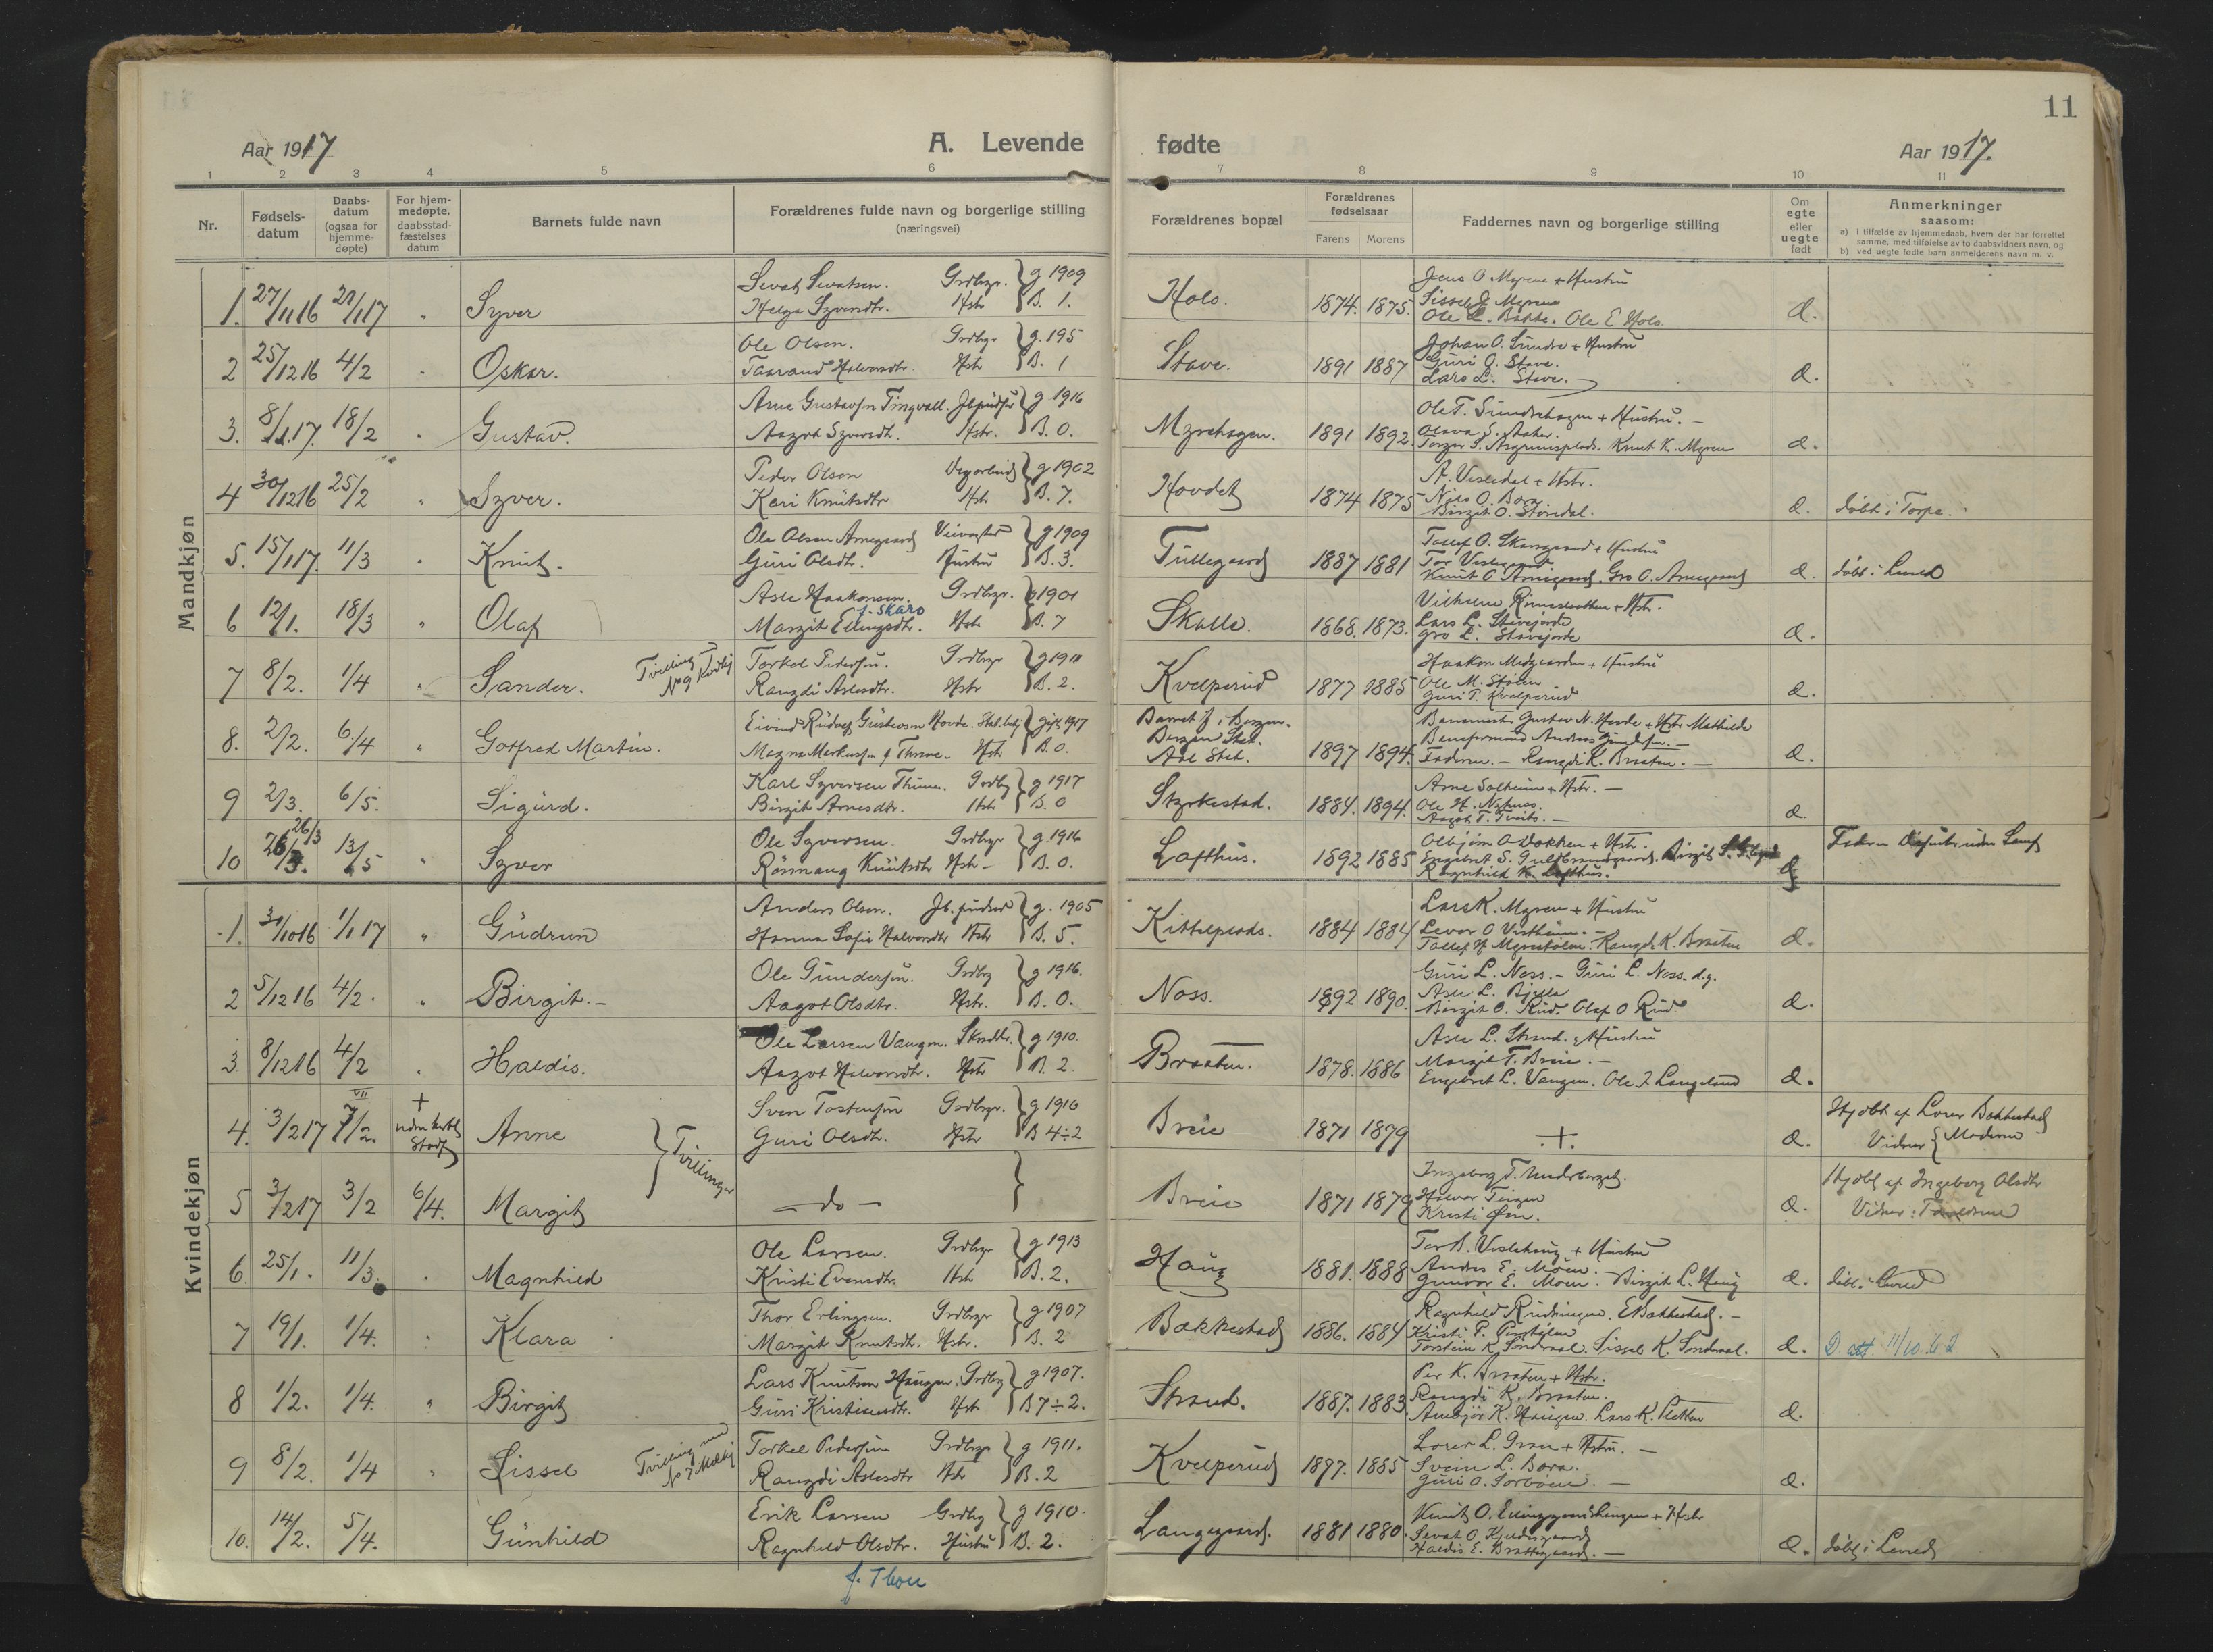 11
Aar 1917
A. Levende fødte
Aar 1917.
1 2 3 4 5 6 7 8 9 10 11
Nr.
Fødsels-
datum
Daabs-
datum
(ogsaa for
hjemme-
døpte)
For hjem-
medøpte,
daabsstad-
fæstelses
datum
Barnets fulde navn
Forældrenes fulde navn og borgerlige stilling
(næringsvei)
Forældrenes bopæl
Forældrenes
fødselsaar
Farens Morens
Faddernes navn og borgerlige stilling
Om
egte
eller
uegte
født
Anmerkninger
saasom:
a) i tilfælde av hjemmedaab, hvem der har forrettet
samme, med tilføielse av to daabsvidners navn, og
b) ved uegte fødte barn anmelderens navn m. v.
Mandkjøn
Sevat Sevatsen. Grdbrgr. g 1909
1. 27/11 16 21/1 17 " Syver Helga Syversdtr. Hstr B. 1. Hols. 1874. 1875.
Jens O Myrene + Hustru
Sissel J. Myrene
Ole L. Bakke. Ole E Hols. d.
Ole Olsen. Grdbgr g. 195
2 25/12 16 4/2 " Oskar. Taarand Halvorsdtr. Hstr B. 1 Stave. 1891 1887
Johan O. Sundre + Hustru
Guri O. Stave.
Lars L. Stave. d.
Arne Gustavsn Tingvall. g 1916
3. 8/1.17. 18/2 " Gustav. Aagot Syversdt. Hstr. B. 0. Myrehagen. 1891 1892.
Ole T. Sundrehagen + Hustru. -
Olava S. Aaker.
Knut K. Myren d.
Peder Olsen Vegarbeid g 1902
4 30/12 16 25/2 " Syver. Kari Knutsdtr Hstr B. 7. Hovdet 1874 1875
A. Vesledal + Hstr.
Nils O. Bora
Birgit O. d. døbt i Torpe.
Ole Olsen Arnegaard g 1909
5. 15/1 17. 11/3 " Knut. Guri Olsdtr. Hustru B. 3. Tullegaard 1887 1881
Tollef O. Skarsgaard + Hustru
Tor Veslegaard
Knut O Arnegaard. Gro O. Arnegaard d. døbt i
Asle Haakonsen. Grdbrgr. g 1901
f. Skaro
6 12/1. 18/3 " Olaf Margit Ellingsdtr. Hstr B. 7 Skalle. 1868. 1873.
Vilhelm + Hstr.
Lars L. Stavejorde
Gro L. Stavejorde d.
Tvilling
No 9 Kvdkj
Torkel Pedersen. Grdbrgr g 1911
7 8/2. 1/4 " Sander. Rangdi Aslesdtr. Hstr B. 2. Kvelperud 1877 1885
Haakon Medgaarden + Hustru
Ole M. Stølen
Guri T. Kvelperud. d.
Eivind Rudolf Gustavsen Hovde. gift 1917
8. 2/2. 6/4 " Gotfred Martin. Magna Markusn f Thrane. Hstr B. 0.
Barnet f. i Bergen.
Bergen Stat.
Aal Stat. 1897 1894.
Gustav N. Hovde + Hstr Mathilde
Faderen. - Rangdi K. Braaten. - d.
Karl Syversen Thune. Grdbg g 1917
9 2/3. 6/5. Sigurd. Birgit Arnesdtr. Hstr B. 0 Styrkestad. 1884. 1894.
Arne Solheim + Hstr. -
Ole H. Nyhuss.
Aagot T. Tveito. - d.
Ole Syversen. Grdbrgr g. 1916
10 26/3 13/5 " Syver Knutsdtr Hstr - B. 0. Lofthus. 1892 1885
Olbjørn O Dokken + Hstr.
Engebret S. Gulbrandsgaard. Birgit S.
Ragnhild K. Lofthus.
Kvindekjøn
Anders Olsen. g. 1905
1. 30/10 16 1/1 17 " Gudrun Hanna Sofie Halvorsdtr Hstr B. 5. Kittelplads. 1884 1884
Lars K. Myren + Hustru
Levor O Vestheim. -
Tollef H Myrestølen. Rangdi K. Braaten d.
Ole Gundersen. Grdbg g 1916.
2 5/12 16 4/2. " Birgit. - Aagot Olsdtr. Hstr. B. 0. Noss. 1892 1890.
Guri L. Noss. - Guri L. Noss. d.y.
Asle L. Bjella
Birgit O. Rud. Olaf O Rud d.
Ole Larsen Vangen. g 1910.
3 8/12 16 4/2 " Haldis. Aagot Halvorsdtr. Hstr B. 2. Braaten. 1878. 1886
Asle L. Strand. + Hustru
Margit T. Breie. -
Engebret L. Vangen. Ole T. Langeland d.
Sven Tostensen Grdbrgr. g 1916
4. 3/2 17 7/2 + Anne Guri Olsdtr. Hstr B 4÷2 Breie 1871 1879 .+. d.
Hjdbt af Lorer Bakkestad
Vidner Moderen
Tvillinger
5 3/2 17 3/2 6/4. Margit - do - Breie 1871 1879
Ingeborg T. Underberget.
Halvor Teigen
Kristi Øen. d.
Hjdbt af Ingeborg Olsdtr
Vidner:
Ole Larsen. Grdbrgr g 1913
6. 25/1. 11/3. " Magnhild Kristi Evensdtr. Hstr B. 2. Haug 1881. 1888
Tor B. Veslehaug + Hustru
Andres E. Moen. -
Gunvor E. Moen. Birgit L. Haug d. døbt i
Thor Erlingsen. Grdbrgr g 1907
7 19/1. 1/4. " Klara Margit Knutsdtr. Hstr. B. 2 Bakkestad 1886. 1884
Ragnhild Rudningen. E Bakkestad. -
Kristi P.
Torstein K. Sondraal. Sissel K. Sondraal. d. D. att. 11/10.62
Lars Knutsen Haugen. Grdbg g 1907.
8 1/2. 1/4. " Birgit Guri Kristiansdtr. Hstr B 7÷2. Strand. 1887. 1883.
Per K. Braaten + Hstr.
Rangdi K. Braaten.
K. Haugen. Lars K. d.
Tvilling med
No 7 Mdkj
Torkel Pedersen Grdbrgr g 1911.
9 8/2. 1/4 " Sissel Rangdi Aslesdtr Hstr B. 2 Kvelperud 1877. 1885
Lorer L. Gran + Hstr. -
Svein L. Bora.
Guri O. d.
Erik Larsen Grdbg g 1910.
10. 14/2. 5/4. Gunhild Ragnhild Olsdtr. Hustru B. 2. Langegaard. 1881 1880.
Knut O. + Hstr
Sevat O.
Haldis E. Brattegaard. - d. døbt i
f. Thon